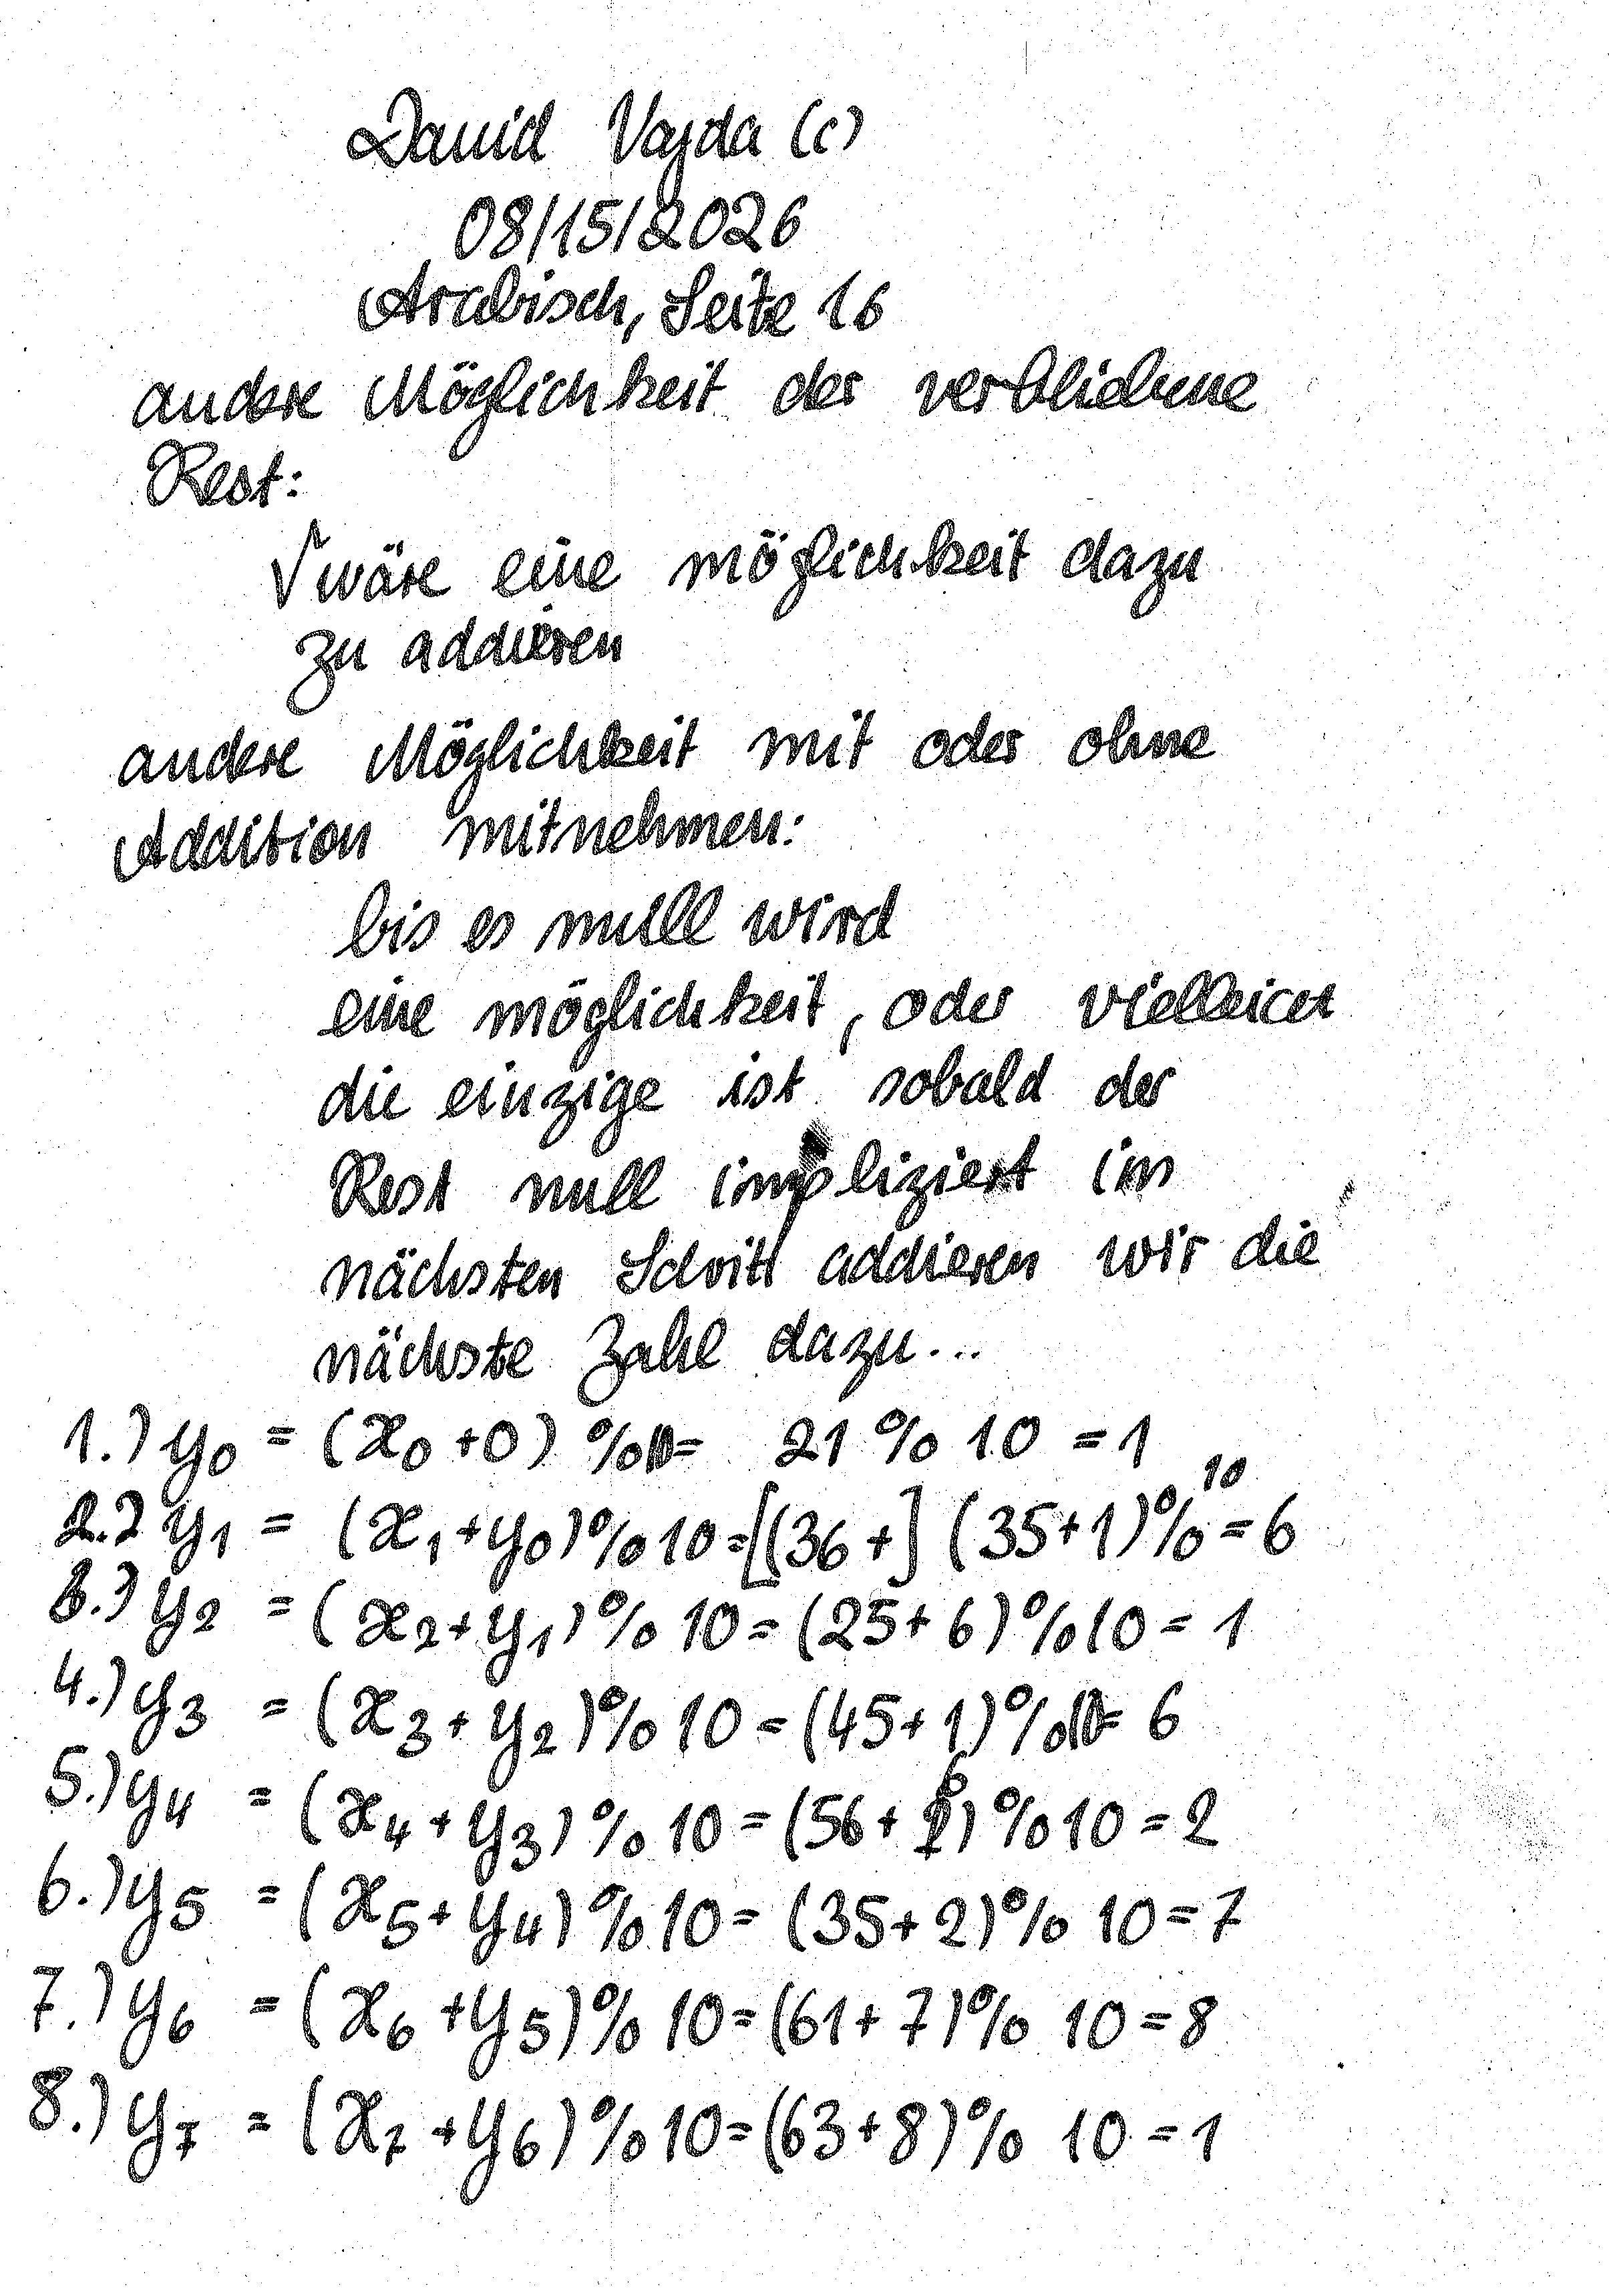 David Vajda (c)
08/15/2026
Arabisch, Seite 16
andere Möglichkeit der verbliebene
Rest:
√ wäre eine möglichkeit dazu
zu addieren
andere Möglichkeit mit oder ohne
Addition mitnehmen:
bis es null wird
eine möglichkeit, oder vielleicet
die einzige ist sobald der
Rest null impliziert im
nächsten Schritt addieren wir die
nächste Zahl dazu...
1.) y₀ = (x₀ + 0) %10= 21 % 10 = 1
2.) y₁ = (x₁ + y₀) % 10 = [(36 +] (35+1)%10 = 6
3.) y₂ = (x₂ + y₁) % 10 = (25 + 6) % 10 = 1
4.) y₃ = (x₃ + y₂) % 10 = (45 + 1) % 10 = 6
5.) y₄ = (x₄ + y₃) % 10 = (56 + 6) % 10 = 2
6.) y₅ = (x₅ + y₄) % 10 = (35 + 2) % 10 = 7
7.) y₆ = (x₆ + y₅) % 10 = (61 + 7) % 10 = 8
8.) y₇ = (x₇ + y₆) % 10 = (63 + 8) % 10 = 1